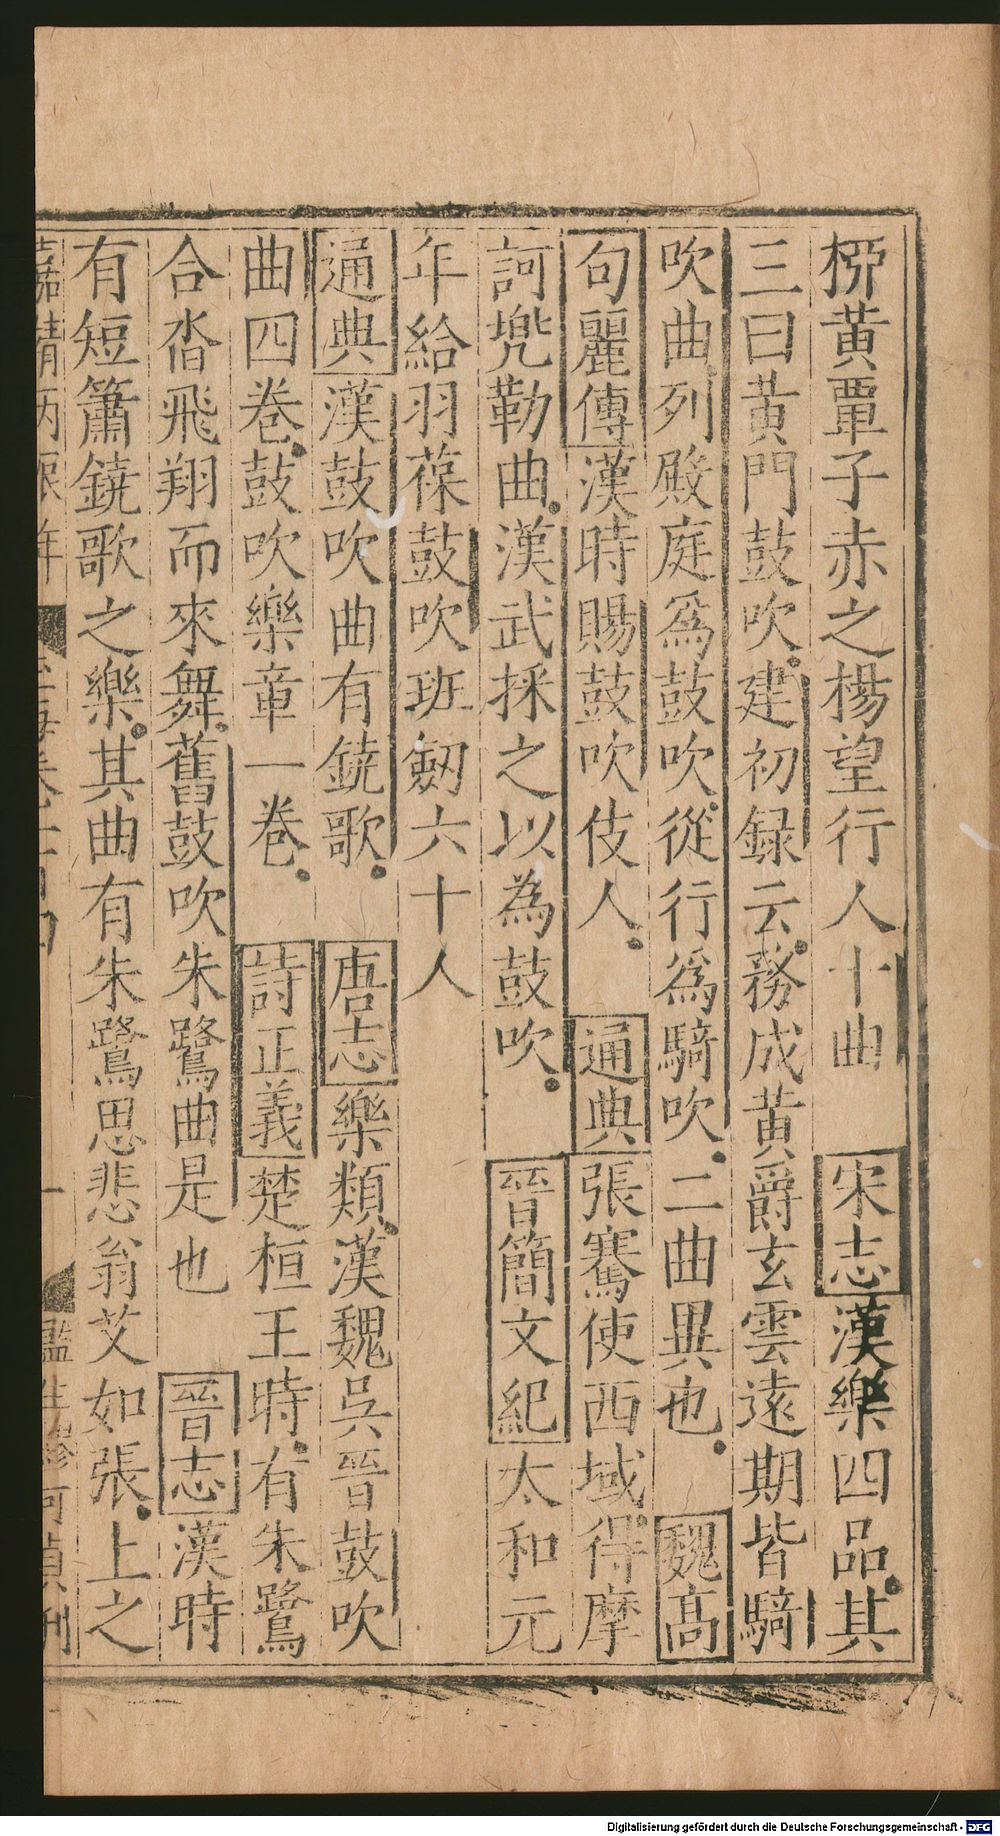 桺黃覃子赤之楊望行人十曲 宋志漢樂四品其
三曰黃門鼓吹建初録云務成黃爵玄雲遠期皆騎
吹曲列殿庭爲鼓吹從行爲騎吹二曲異也 魏髙
句麗傳漢時賜鼓吹伎人 通典張騫使西域得摩
訶兠勒曲漢武採之以為鼓吹 晉簡文紀太和元
年給羽葆鼓吹班劒六十人
通典漢鼓吹曲有鐃歌 唐志樂類漢魏吳晉鼓吹
曲四卷鼓吹樂章一卷 詩正義楚桓王時有朱鷺
合沓飛翔而來舞舊鼓吹朱鷺曲是也 晉志漢時
有短簫鐃歌之樂其曲有朱鷺思悲翁艾如張上之
嘉靖丙辰年 玉海卷 一 監生 何貞刊
Digitalisierung gefördert durch die Deutsche Forschungsgemeinschaft - DFG